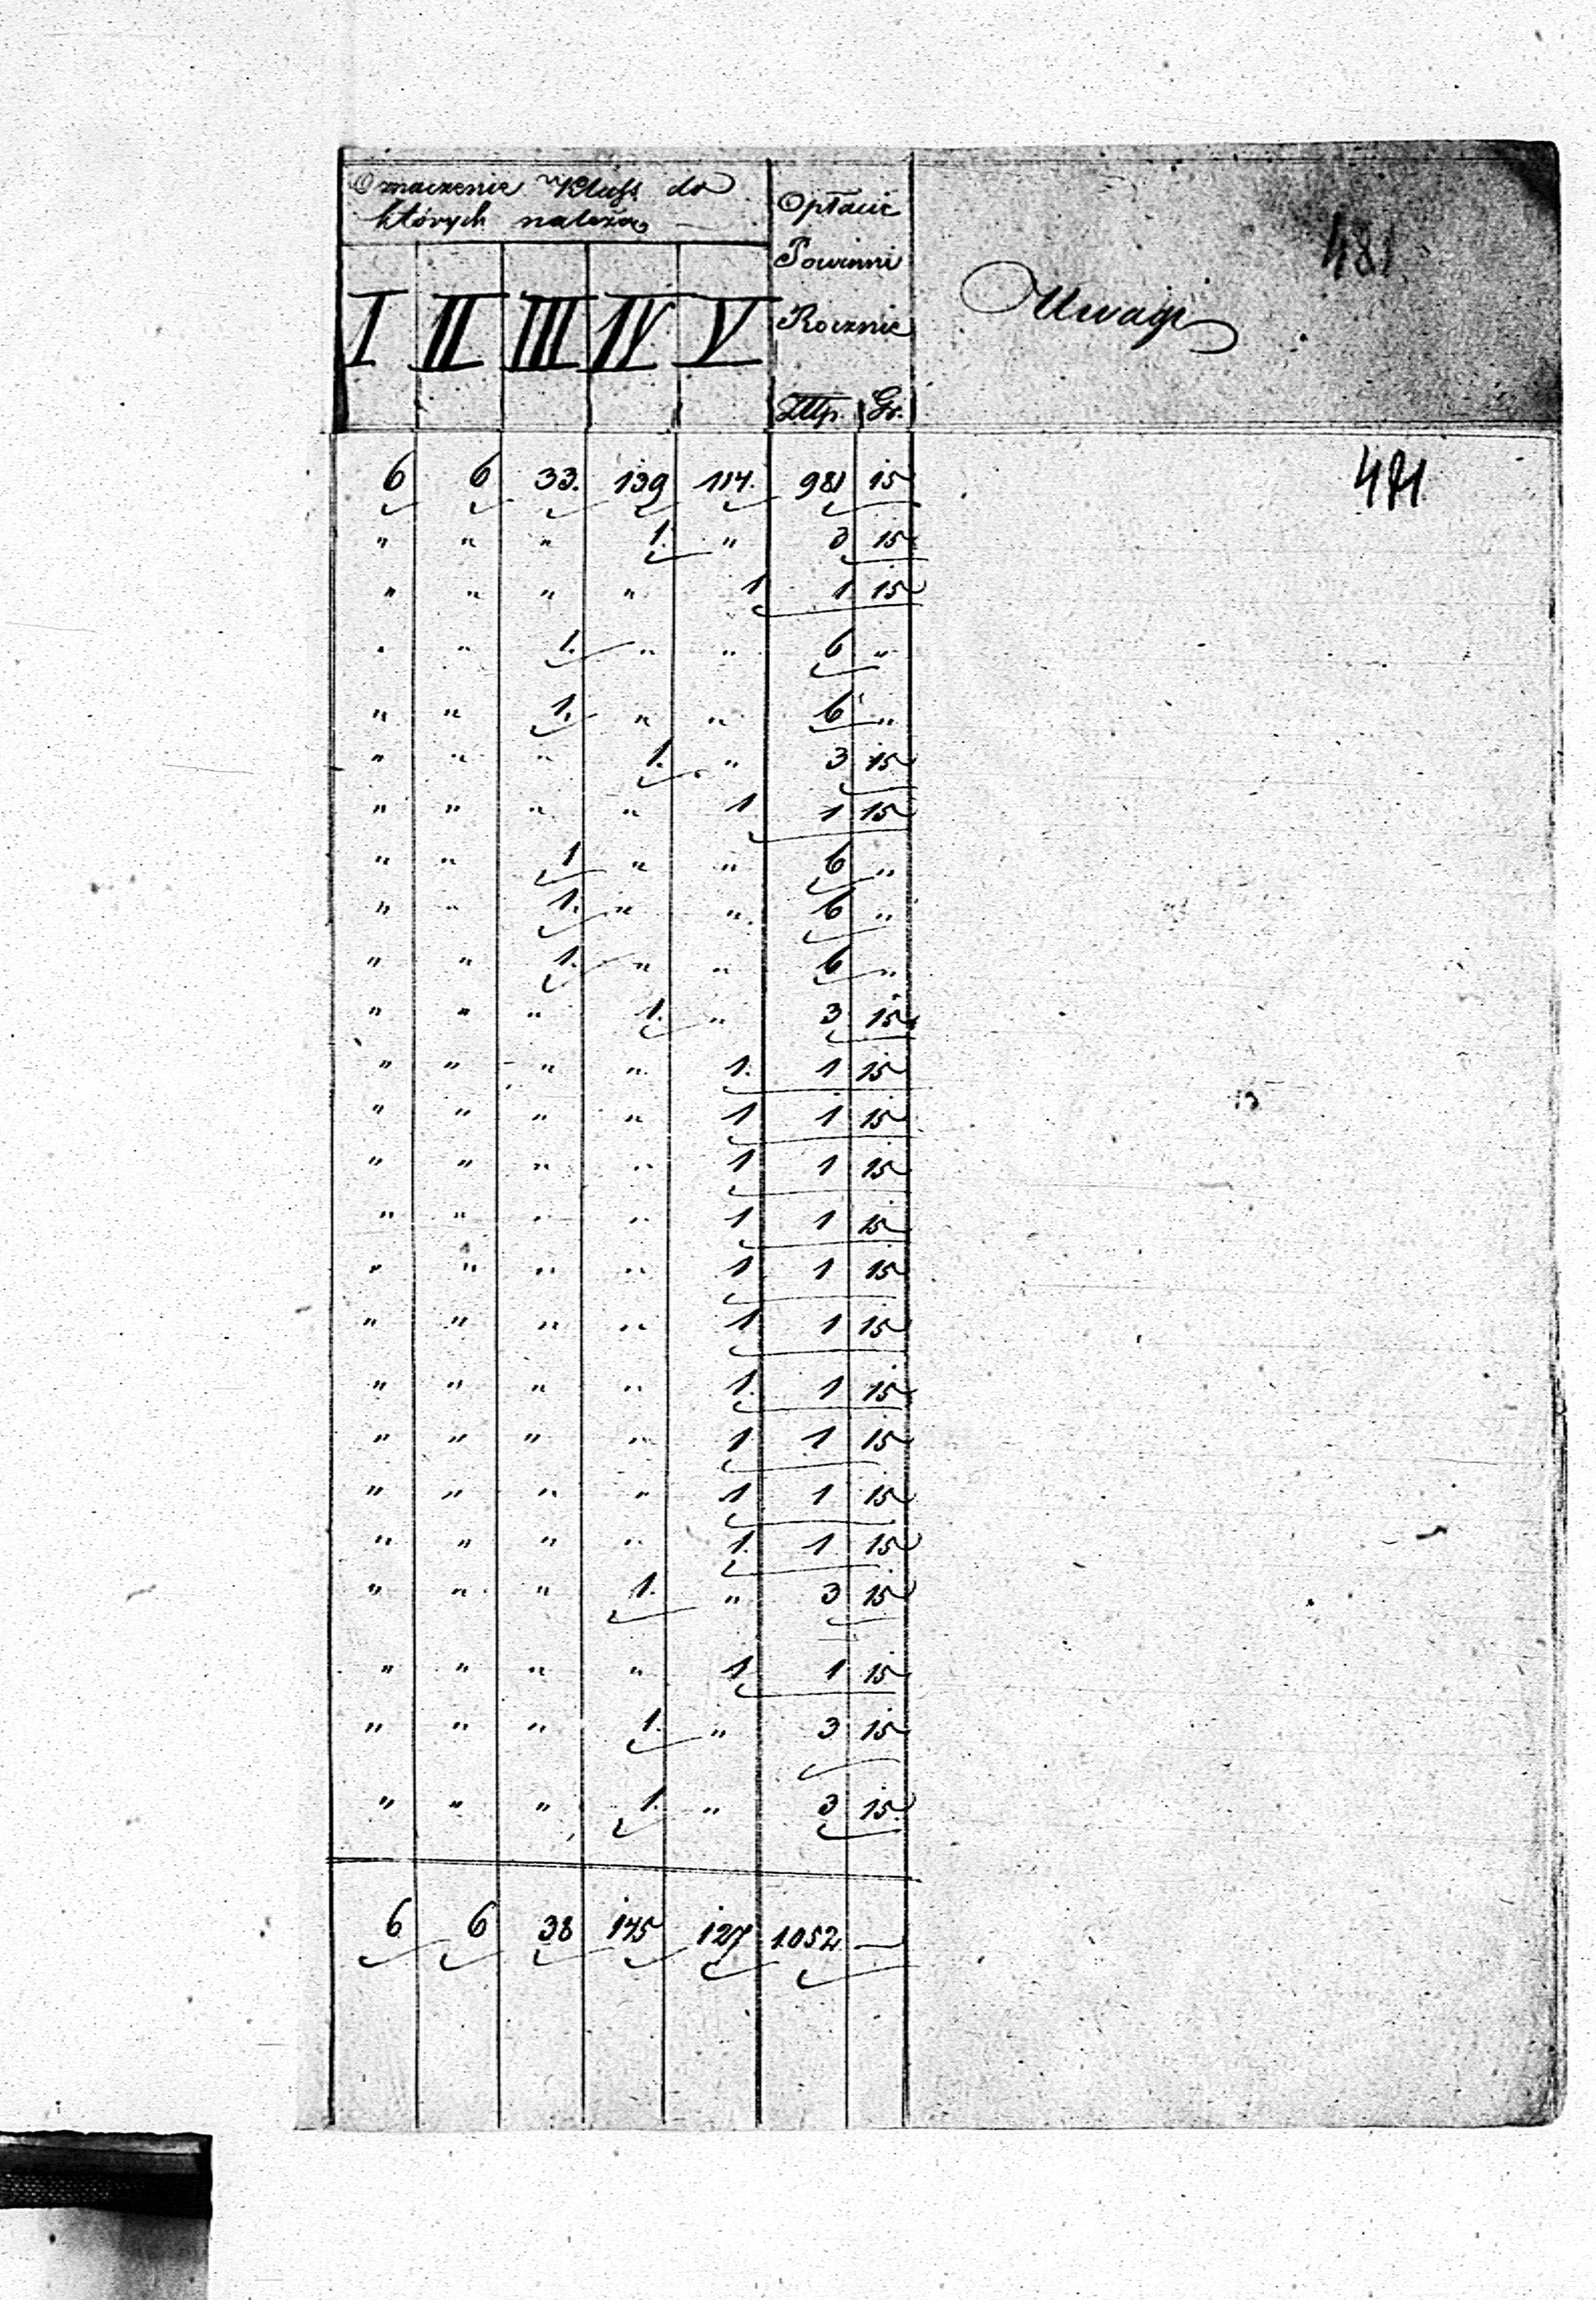 Oznaczenie Klass do
których należą
I II III IV V
Opłacić
Powinni
Rocznie
Złłp. Gr.
Uwagi
481
481
6 6 33. 139 114. 981 15
" " " 1. " 3 15
" " " " 1 1 15
" " 1. " " 6 "
" " 1. " " 6 "
" " " 1. " 3 15
" " " " 1 1 15
" " 1 " " 6 "
" " 1. " " 6 "
" " 1. " " 6 "
" " " 1. " 3 15
" " " " 1. 1 15
" " " " 1 1 15
" " " " 1 1 15
" " " " 1 1 15
" " " " 1 1 15
" " " " 1 1 15
" " " " 1. 1 15
" " " " 1 1 15
" " " " 1 1 15
" " " " 1. 1 15
" " " 1. " 3 15
" " " " 1 1 15
" " " 1. " 3 15
" " " 1. " 3 15
6 6 38 145 127 1052 —